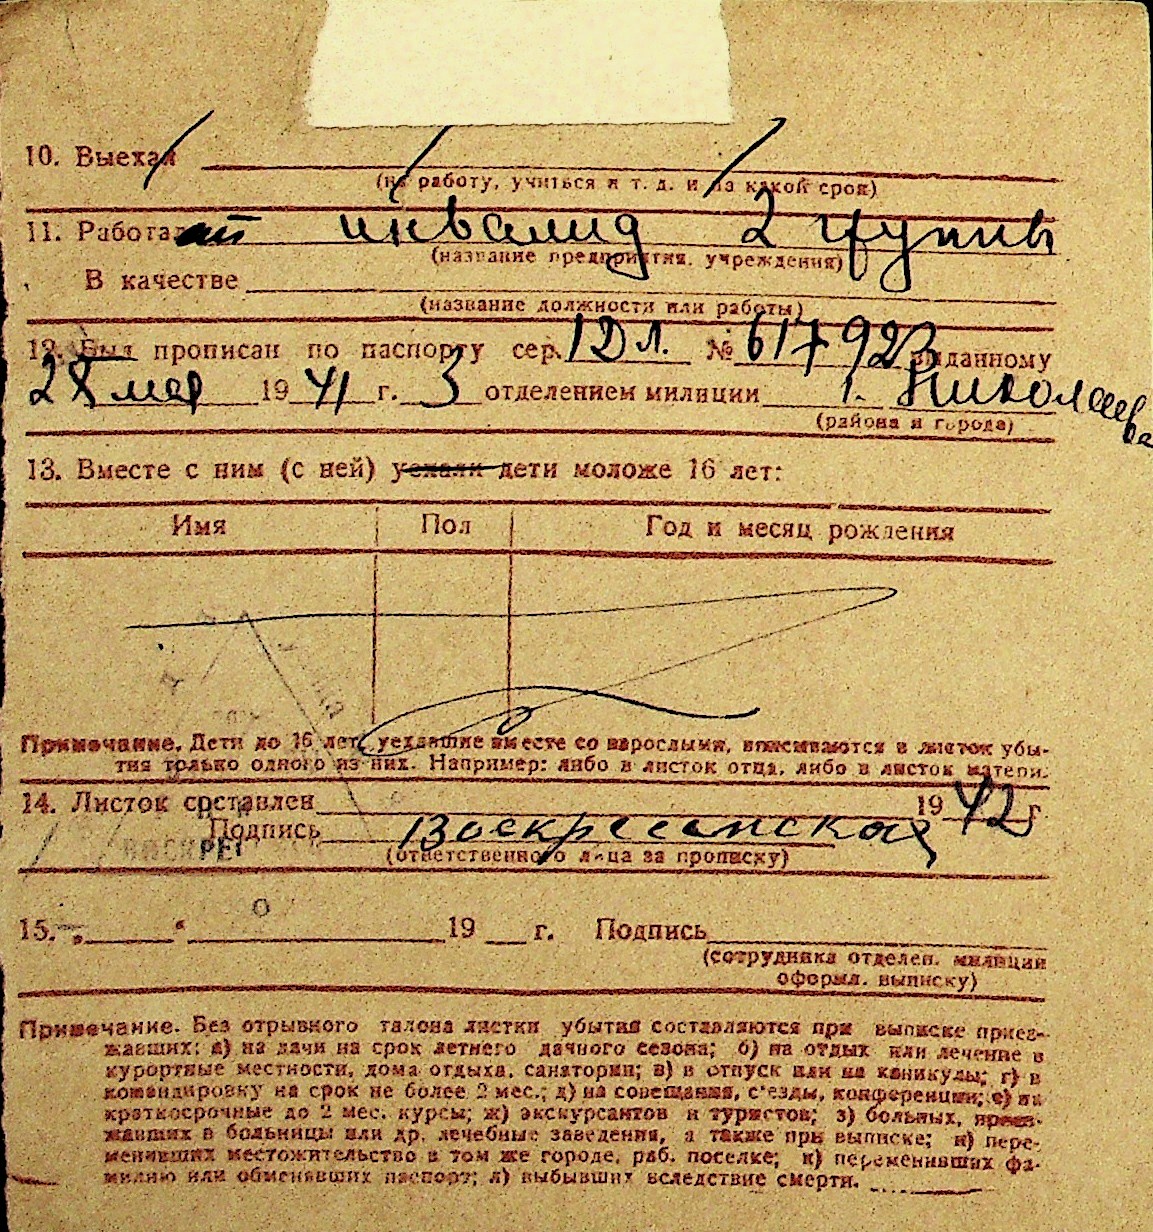 10. Выехал
(на работу, учиться и т. д. и на какой срок)
11. Работает инвалид 2 группы
(название предприятия, учреждения)
В качестве
(название должности или работы)
12. Был прописан по паспорту сер. 1Дл. № 617923 выданному
28 мая 1941 г. 3 отделением милиции г. Николаева
(района и города)
13. Вместе с ним (с ней) уехали дети моложе 16 лет:
Имя Пол Год и месяц рождения
Примечание. Дети до 16 лет, уехавшие вместе со взрослыми, вписываются в листок убы-
тия только одного из них. Например: либо в листок отца, либо в листок матери.
14. Листок составлен 1942 г
Подпись Воскресенская
(ответственного лица за прописку)
15. „ “ 19 г. Подпись
(сотрудника отделен. милиции
оформл. выписку)
Примечание. Без отрывного талона листки убытия составляются при выписке приез-
жавших: а) на дачи на срок летнего дачного сезона; б) на отдых или лечение в
курортные местности, дома отдыха, санатории; в) в отпуск или на каникулы; г) в
командировку на срок не более 2 мес.; д) на совещания, съезды, конференции; е) на
краткосрочные до 2 мес. курсы; ж) экскурсантов и туристов; з) больных, приез-
жавших в больницы или др. лечебные заведения, а также при выписке; и) пере-
менивших местожительство в том же городе, раб. поселке; к) переменивших фа-
милию или обменявших паспорт; л) выбывших вследствие смерти.